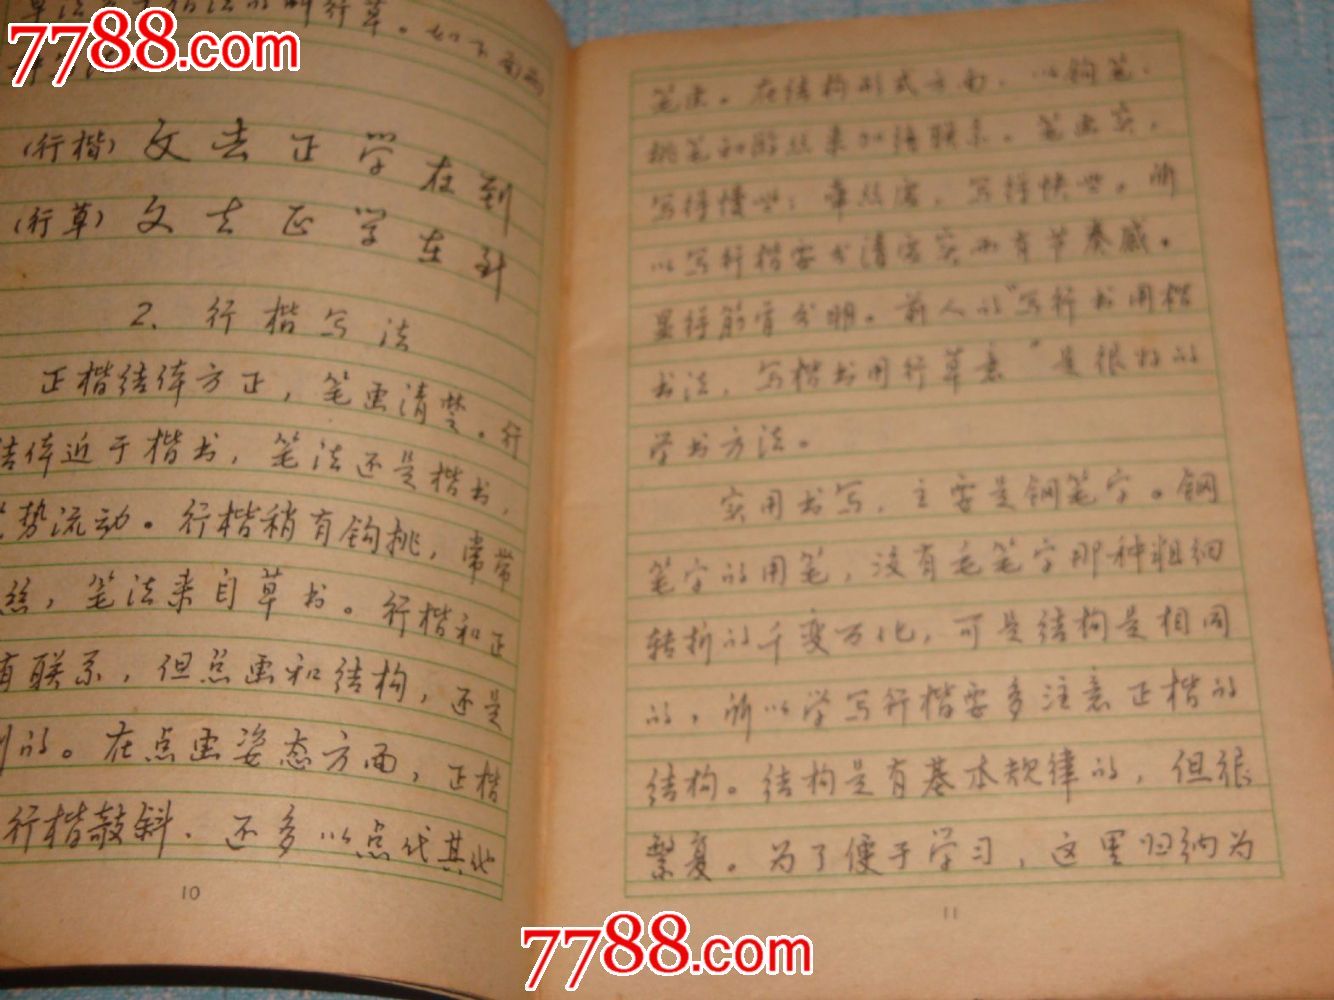 7788.com
草法
(行楷) 文去正学在到
(行草) 文去正学在到
2. 行楷写法
正楷结体方正，笔画清楚。行
结体近于楷书，笔法还是楷书，
势流动。行楷稍有钩挑，常带
丝，笔法来自草书。行楷和正
有联系，但点画和结构，还是
别的。在点画姿态方面，正楷
行楷敧斜，还多以点代其他
10
笔画。在结构形式方面，以钩笔、
挑笔和游丝来加强联系。笔画实，
写得慢些；牵丝虚，写得快些。所
以写行楷要分清虚实而有节奏感。
显得筋骨分明。前人的“写行书用楷
书法，写楷书用行草意”是很好的
学书方法。
实用书写，主要是钢笔字。钢
笔字的用笔，没有毛笔字那种粗细
转折的千变万化，可是结构是相同
的，所以学写行楷要多注意正楷的
结构。结构是有基本规律的，但很
繁复。为了便于学习，这里归纳为
11
7788.com
7788.com